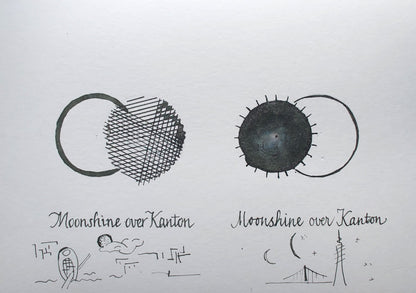 Moonshine over Kanton
Moonshine over Kanton